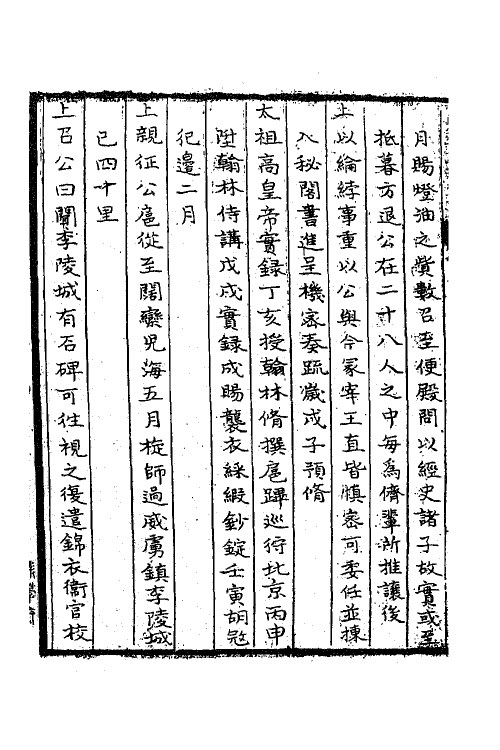 月賜燈油之貲數召至便殿問以經史諸子故實或至
抵暮方退公在二十八人之中每為儕輩所推讓後
上以綸綍事重以公與今冢宰王直皆慎密可委任並揀
入秘閣書進呈機密奏疏歲戊子預脩
太祖高皇帝實録丁亥授翰林脩撰扈蹕巡狩北京丙申
陞翰林侍講戊戌實録成賜襲衣綵緞鈔錠壬寅胡冦
犯邊二月
上親征公扈從至闊欒児海五月旋師過威虜鎮李陵城
已四十里
上召公曰聞李陵城有石碑可徃視之復遣錦衣衛官校